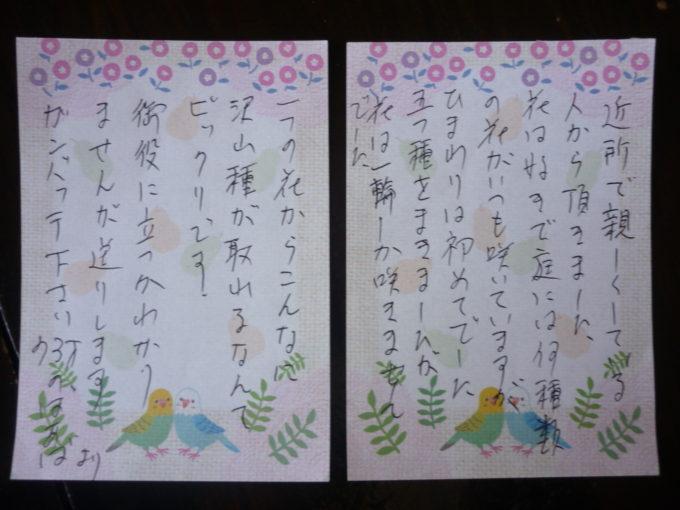 近所で親しくしてる
人から頂きました
花は好きで庭には何種類
の花がいつも咲いていますが
ひまわりは初めてでした
五つ種をまきましたが
花は一輪しか咲きません
でした
一つの花からこんなに
沢山種が取れるなんて
ビックリです!
御役に立つかわかり
ませんが送りします
ガンバッテ下さい
ばぁば より